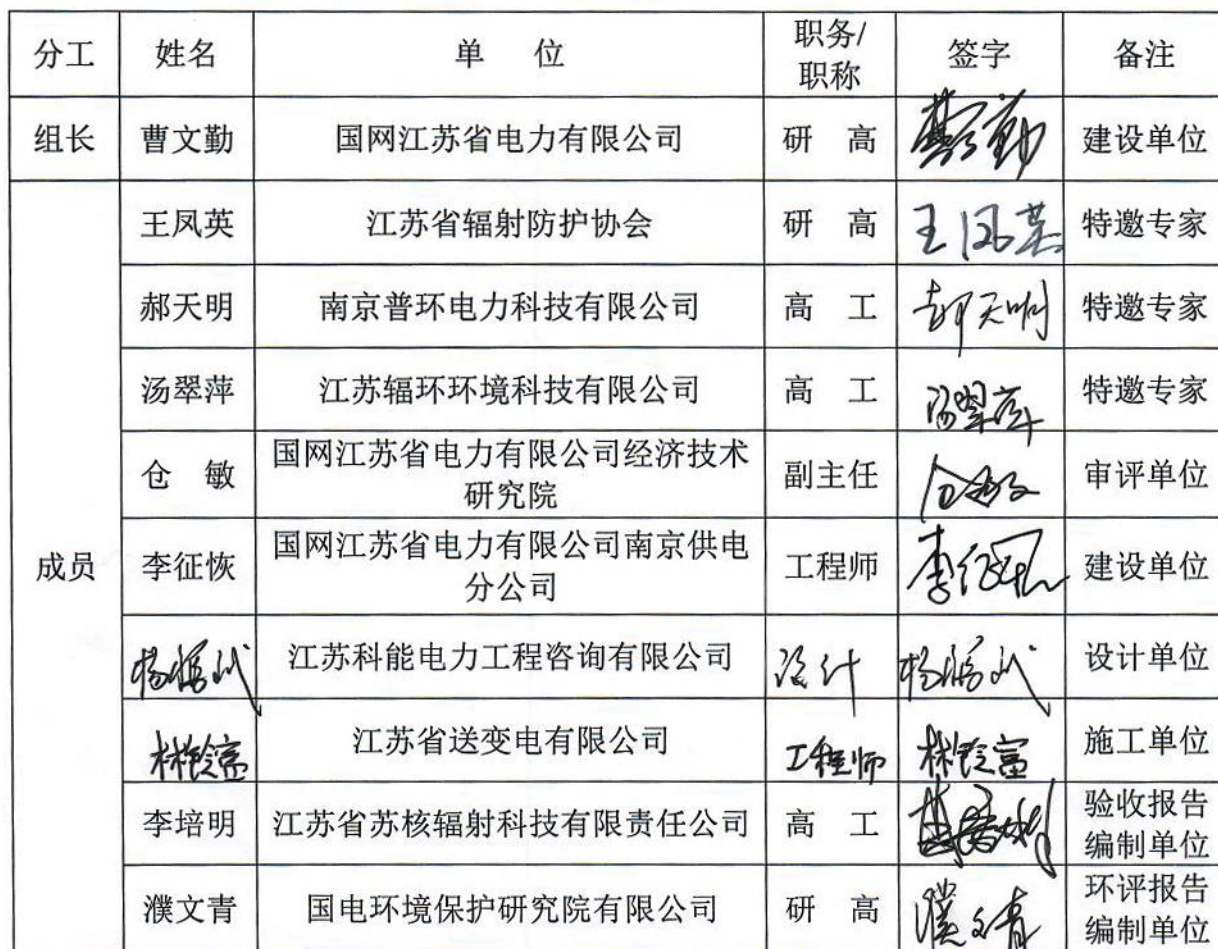 分工 姓名 单 位 职务/职称 签字 备注
组长 曹文勤 国网江苏省电力有限公司 研 高 建设单位
成员
王凤英 江苏省辐射防护协会 研 高 王凤英 特邀专家
郝天明 南京普环电力科技有限公司 高 工 郝天明 特邀专家
汤翠萍 江苏辐环环境科技有限公司 高 工 汤翠萍 特邀专家
仓 敏 国网江苏省电力有限公司经济技术研究院 副主任 仓敏 审评单位
李征恢 国网江苏省电力有限公司南京供电分公司 工程师 李征恢 建设单位
江苏科能电力工程咨询有限公司 设计 设计单位
江苏省送变电有限公司 工程师 施工单位
李培明 江苏省苏核辐射科技有限责任公司 高 工 验收报告编制单位
濮文青 国电环境保护研究院有限公司 研 高 濮文青 环评报告编制单位